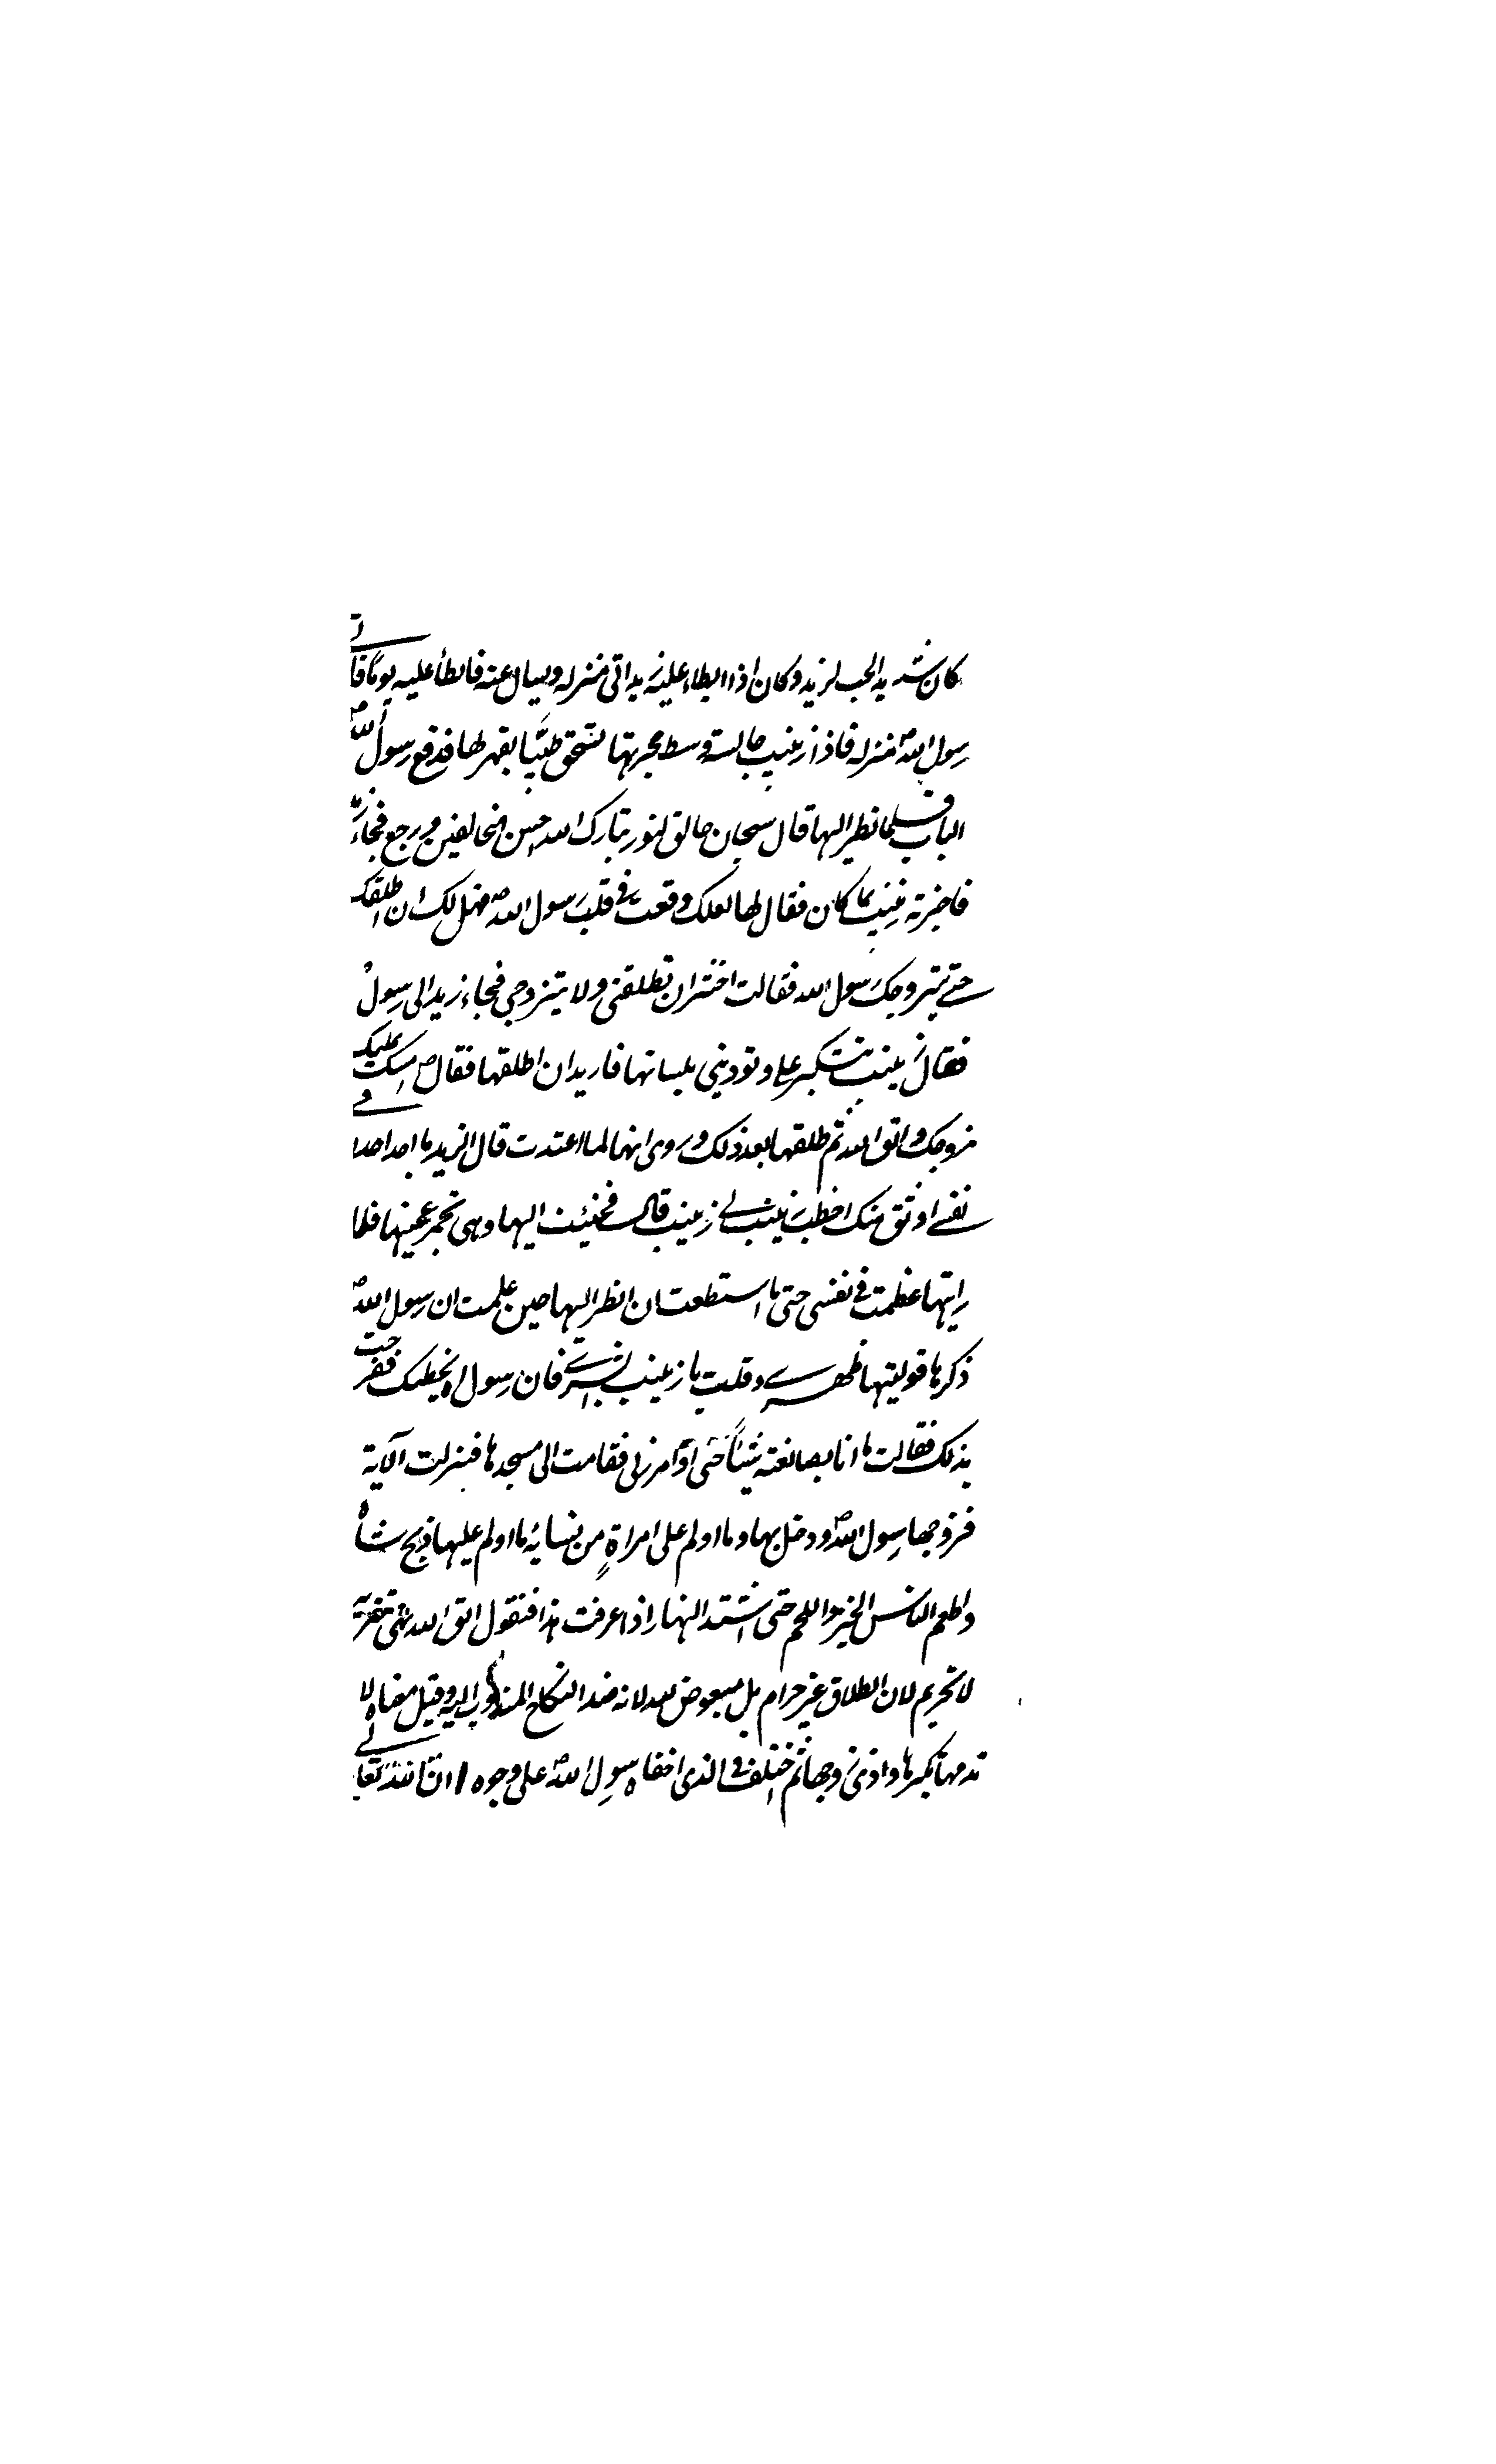 كان شديد الحب لزيد وكان اذا ابطاء عليه زيد اتى منزله ويسال عنه فابطأ عليه يوما فاتى
رسول اللهص منزله فاذا زينب جالسة وسط حجرتها تسحق طيبا بفهر لها فدفع رسول اللهص
الباب فلما نظر اليها قال سبحان خالق النور تبارك الله احسن الخالقين ورجع فجاء زيد
فاخبرته زينب بما كان فقال لها لعلك وقعت في قلب رسول اللهص فهل لك ان اطلقك
حتى يتزوجك رسول الله فقالت اخشى ان تطلقني ولا يتزوجني فجاء زيد الى رسول
فقال زينب تتكبر على وتوذيني بلسانها فاريد ان اطلقها فقالص امسك عليك
زوجك واتق الله ثم طلقها بعد ذلك وروى انها لما اعتدت قال لزيد ما اجد احدا في
نفسي اوثق منك اخطب زينب لي زينب قال فجئت اليها وهي تخمر عجينها فلما
رايتها عظمت في نفسي حتى ما استطعت ان انظر اليها حين علمت ان رسول اللهص
ذكرها فوليتها ظهري وقلت يا زينب ابشري فان رسول الله يخطبك ففرحت
بذلك فقالت ما انا بصانعة شيئا حتى اوامر ربي فقامت الى مسجدها فنزلت الآية
فزوجها رسول اللهص ودخل بها وما اولم على امراة من نسائه ما اولم عليها ذبح شاة
واطعم الناس الخبز واللحم حتى اشتد النهار اذا عرفت هذا فنقول اتق الله نهى تنزيه
لا تحريم لان الطلاق غير حرام بل مبغوض لله لانه ضد النكاح المندوب اليه وقيل معناه لا
تذمها بكبرها واذى زوجها ثم اختلف في الذي اخفاه رسول اللهص على وجوه ا ان الله تعالى